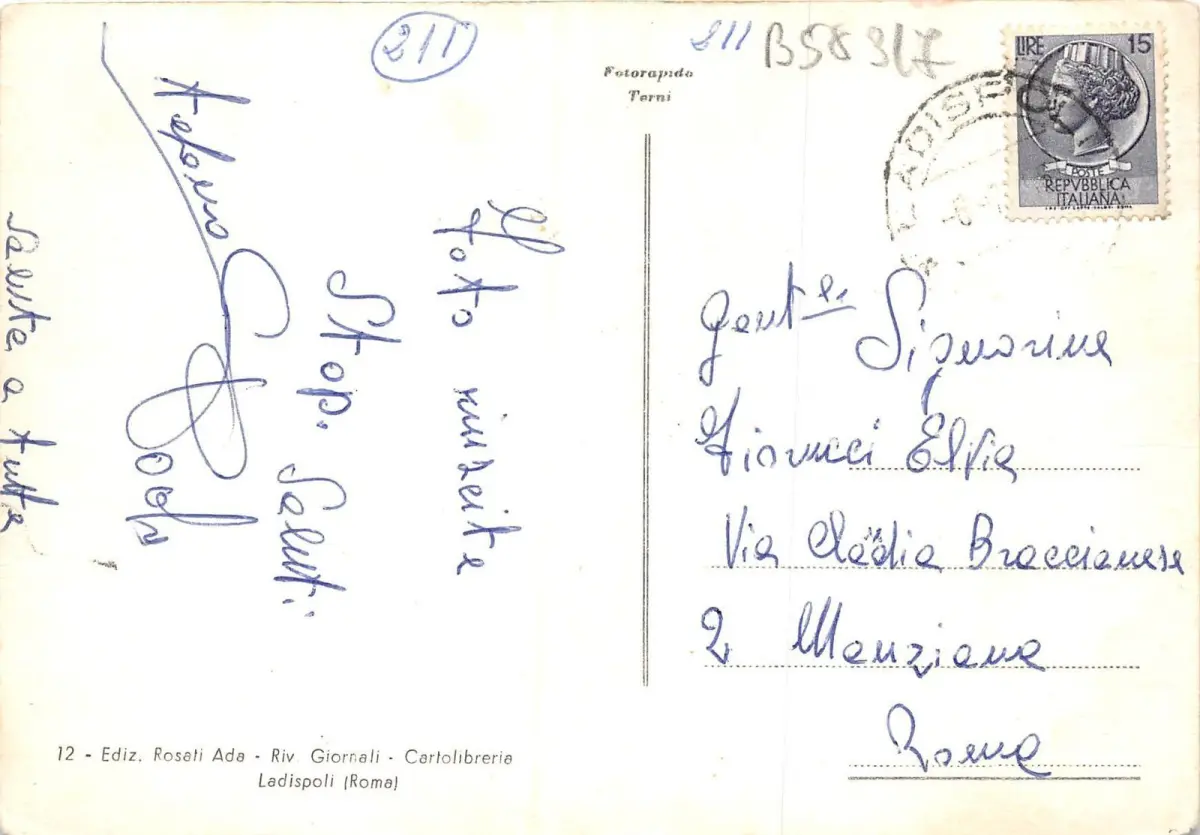 211
211 B58317
Fotorapido
Terni
LIRE 15
POSTE
REPVBBLICA
ITALIANA
LADISPO
Foto riuscite
Stop. Saluti:
Saluta a tutte
Gent.le
Signorina
Fiorucci Elvia
Via Claudia Braccianese
2 Manziana
Roma
12 - Ediz. Rosati Ada - Riv. Giornali - Cartolibreria
Ladispoli (Roma)